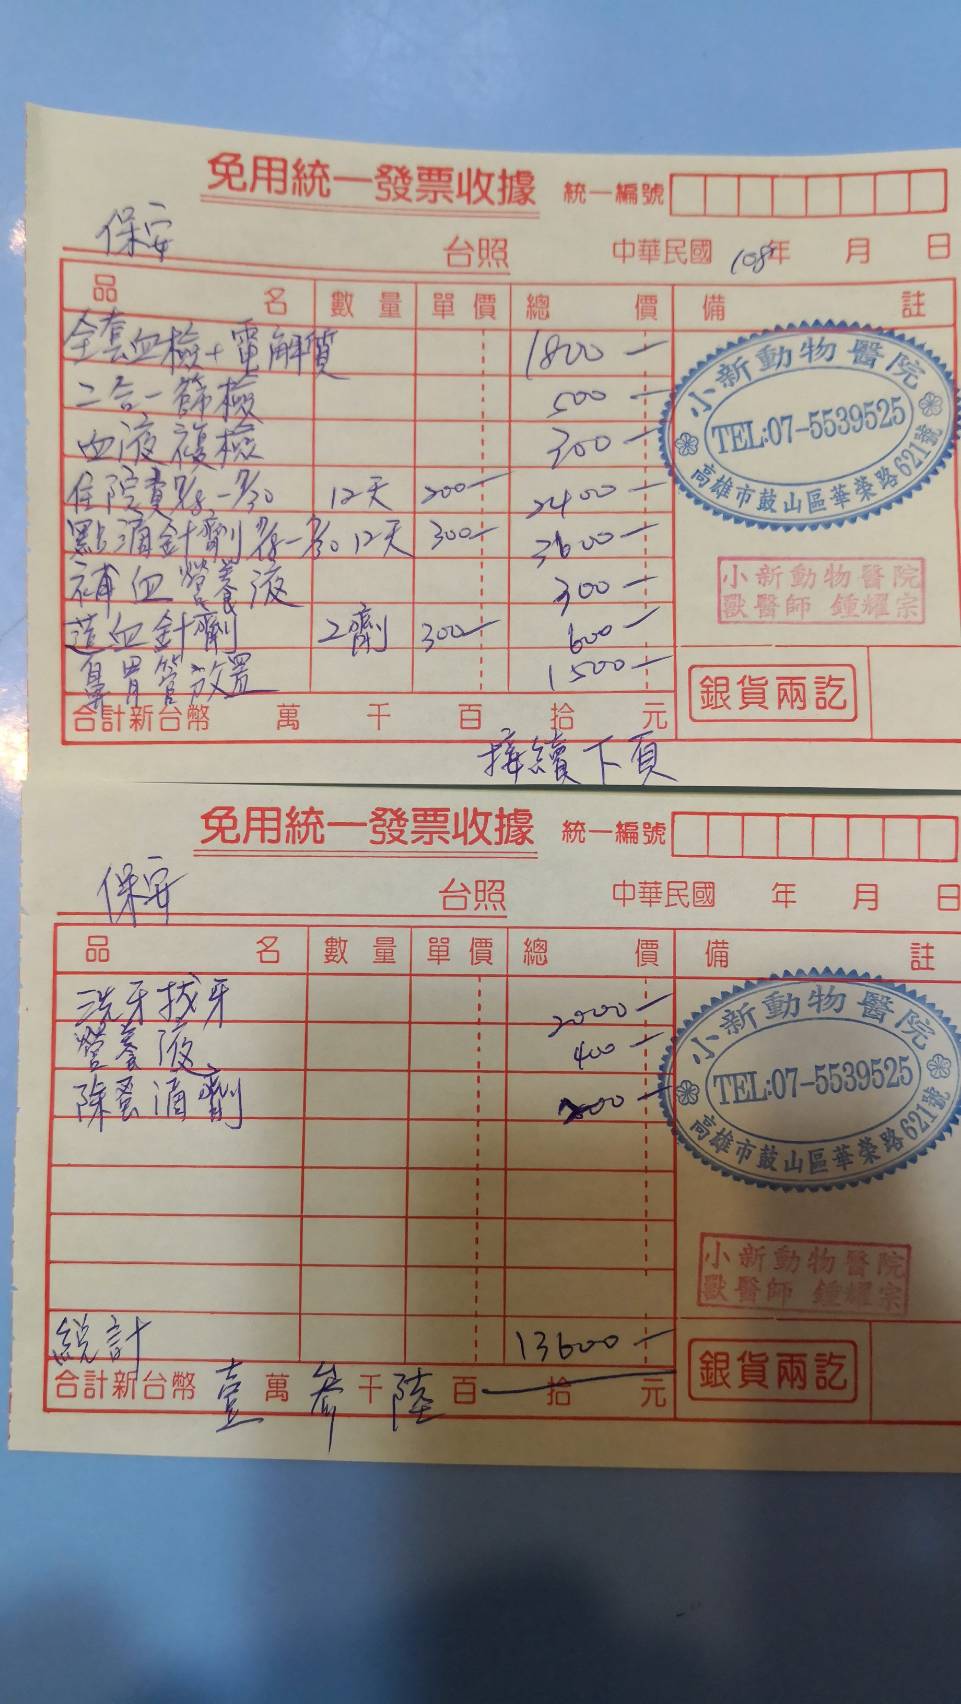 免用統一發票收據 統一編號
保安 台照 中華民國 108年 月 日
品名 數量 單價 總價 備註
全套血檢+電解質 1800
二合一篩檢 500
血液複檢 300
住院費 12天 200 2400
點滴針劑 12天 300 3600
補血營養液 300
造血針劑 2劑 300 600
鼻胃管放置 1500
小新動物醫院
TEL:07-5539525
高雄市鼓山區華榮路621號
小新動物醫院
獸醫師 鍾耀宗
銀貨兩訖
合計新台幣 萬 千 百 拾 元
接續下頁
免用統一發票收據 統一編號
保安 台照 中華民國 年 月 日
品名 數量 單價 總價 備註
洗牙拔牙 2000
營養液 400
除蚤滴劑 200
小新動物醫院
TEL:07-5539525
高雄市鼓山區華榮路621號
小新動物醫院
獸醫師 鍾耀宗
總計 13600
銀貨兩訖
合計新台幣 壹萬參千陸百拾元